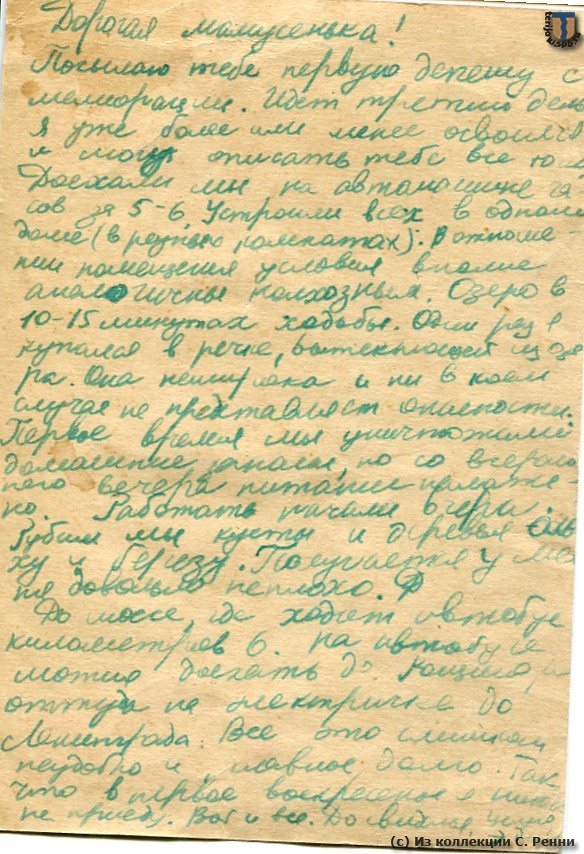 Дорогая мамусенька!
Посылаю тебе первую депешу с
мелиорации. Идет третий день
я уже более или менее освоилсь
и могу описать тебе все
Доехали мы на автомашине ча
сов за 5-6. Устроили всех в одном
доме (в разных комнатах). В отноше-
нии помещения условия вполне
аналогичны колхозным. Озеро в
10-15 минутах ходьбы. Один раз я
купался в речке, вытекающей из озе
ра. Она неширока и ни в коем
случае не представляет опасности.
Первое время мы уничтожили
домашние запасы, но со вчераш
него вечера питание налаже-
но. Работать начали вчера.
Рубим мы кусты и деревья оль
ху и березу. Получается у ме
ня довольно неплохо.
До шоссе, где ходит автобус
километров 6. На автобусе
можно доехать до Рощино, а
оттуда на электричке до
Ленинграда. Все это слишком
неудобно и главное долго. Так
что в первое воскресенье я
не приеду. Вот и все. До свиданья,
terijoki.spb.ru
(c) Из коллекции С. Ренни